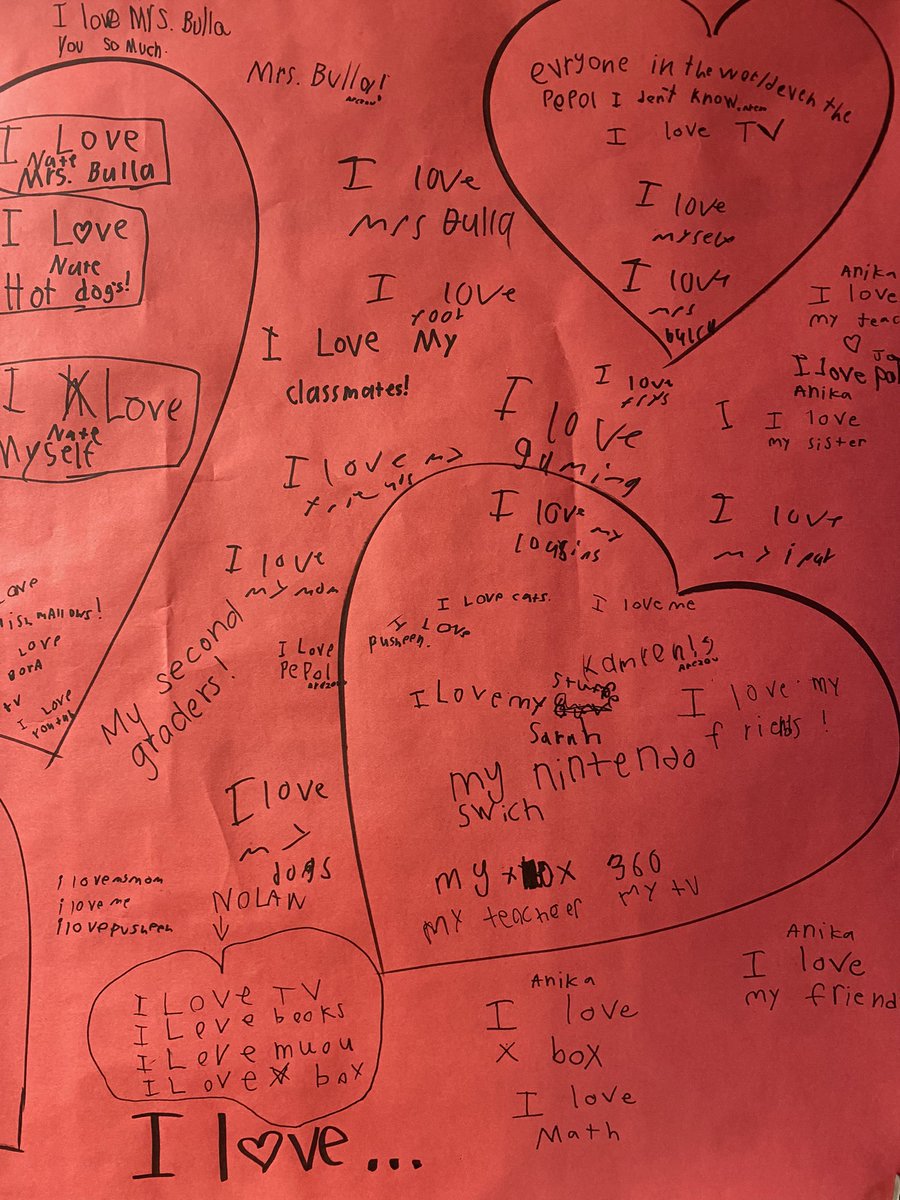 I love Mrs. Bulla
You so Much.
Mrs. Bulla!
Arezou!
I Love
Nate
Mrs. Bulla
I L♡ve
Nate
Hot dogs!
I Love
Nate
Myself
evryone in the world even the
PePol I don't know.
I love TV
I love
myself
I love
mrs
I love
mrs Bulla
I love
I Love My
classmates!
I love my
friends
I love
gaming
I love
I love
my
I love
my
I love
my mom
Anika
I love
my teac
♡
I love pol
Anika
I love
my sister
I
My second
graders!
I Love
PePol
Arezou
Love
TV
I Love
I Love cats.
I Love
pusheen.
I love me
Arezou
I Love my
Sarah
I love my
friends!
my nintendo
swich
my xbox 360
my teacheer my tv
I love
my
dogs
i love my mom
i love me
i love pusheen
NOLAN
I Love TV
I Love books
I Love muou
I Love X box
Anika
I love
X box
I love
Math
Anika
I love
my friend
I l♡ve...